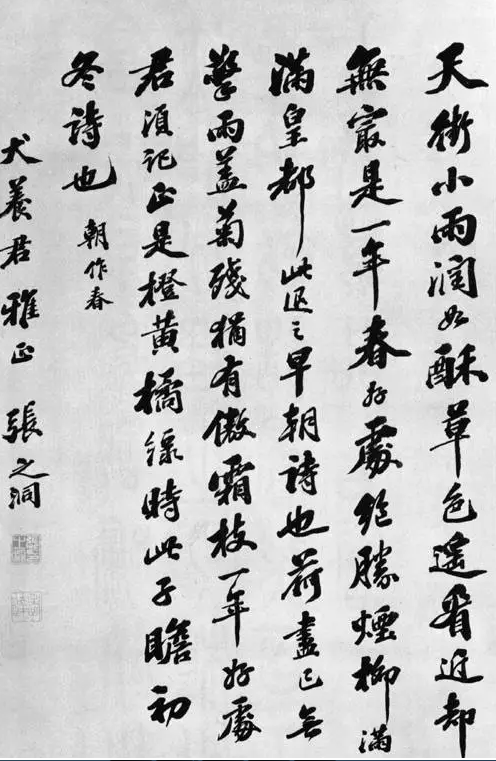 天街小雨潤如酥草色遙看近却
無最是一年春好處絕勝煙柳滿
滿皇都此退之早朝詩也荷盡已無
擎雨盖菊殘猶有傲霜枝一年好處
君須記正是橙黃橘綠時此子瞻初
冬詩也 朝作春
犬養君雅正 張之洞